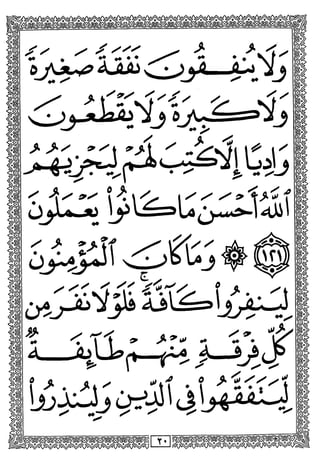 وَلَا يُنفِقُونَ نَفَقَةً صَغِيرَةً
وَلَا كَبِيرَةً وَلَا يَقْطَعُونَ
وَادِيًا إِلَّا كُتِبَ لَهُمْ لِيَجْزِيَهُمُ
اللَّهُ أَحْسَنَ مَا كَانُوا۟ يَعْمَلُونَ
۝١٢١ ۞ وَمَا كَانَ الْمُؤْمِنُونَ
لِيَنفِرُوا۟ كَآفَّةً ۚ فَلَوْلَا نَفَرَ مِن
كُلِّ فِرْقَةٍ مِّنْهُمْ طَآئِفَةٌ
لِّيَتَفَقَّهُوا۟ فِى الدِّينِ وَلِيُنذِرُوا۟
٢٠